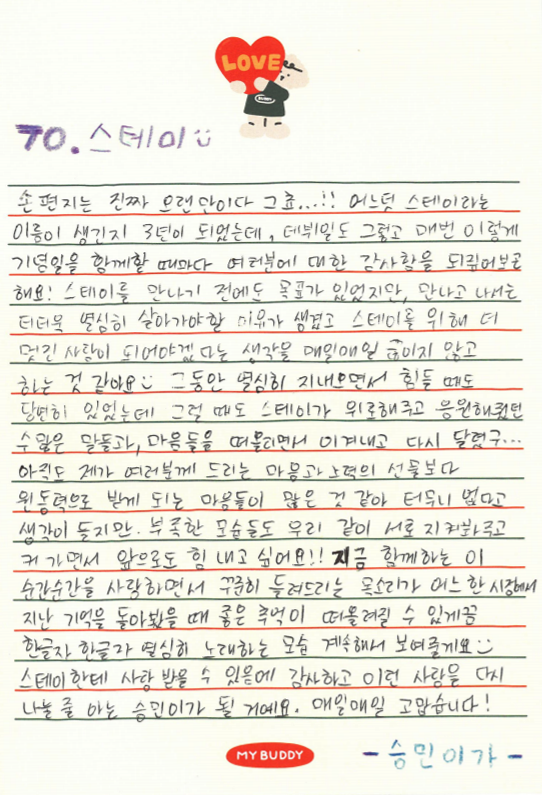 LOVE
BUDDY
TO. 스테이
손 편지는 진짜 오랜만이다 그죠...!! 어느덧 스테이라는
이름이 생긴지 3년이 되었는데, 데뷔일도 그렇고 매번 이렇게
기념일을 함께할 때마다 여러분에 대한 감사함을 되뀌어보곤
해요! 스테이를 만나기 전에도 목표가 있었지만, 만나고 나서는
더더욱 열심히 살아가야할 이유가 생겼고 스테이를 위해 더
멋진 사람이 되어야겠다는 생각을 매일매일 끊이지 않고
하는 것 같아요 그동안 열심히 지내오면서 힘들 때도
당연히 있었는데 그럴 때도 스테이가 위로해주고 응원해줬던
수많은 말들과, 마음들을 떠올리면서 이겨내고 다시 달렸구...
아직도 제가 여러분께 드리는 마음과 노력의 선물보다
원동력으로 받게 되는 마음들이 많은 것 같아 터무니 없다고
생각이 들지만. 부족한 모습들도 우리 같이 서로 지켜봐주고
커 가면서 앞으로도 힘 내고 싶어요!! 지금 함께하는 이
순간순간을 사랑하면서 꾸준히 들려드리는 목소리가 어느 한 시점에서
지난 기억을 돌아봤을 때 좋은 추억이 떠올려질 수 있게끔
한글자 한글자 열심히 노래하는 모습 계속해서 보여줄게요
스테이한테 사랑 받을 수 있음에 감사하고 이런 사랑을 다시
나눌 줄 아는 승민이가 될 거예요. 매일매일 고맙습니다!
MY BUDDY
- 승민이가 -